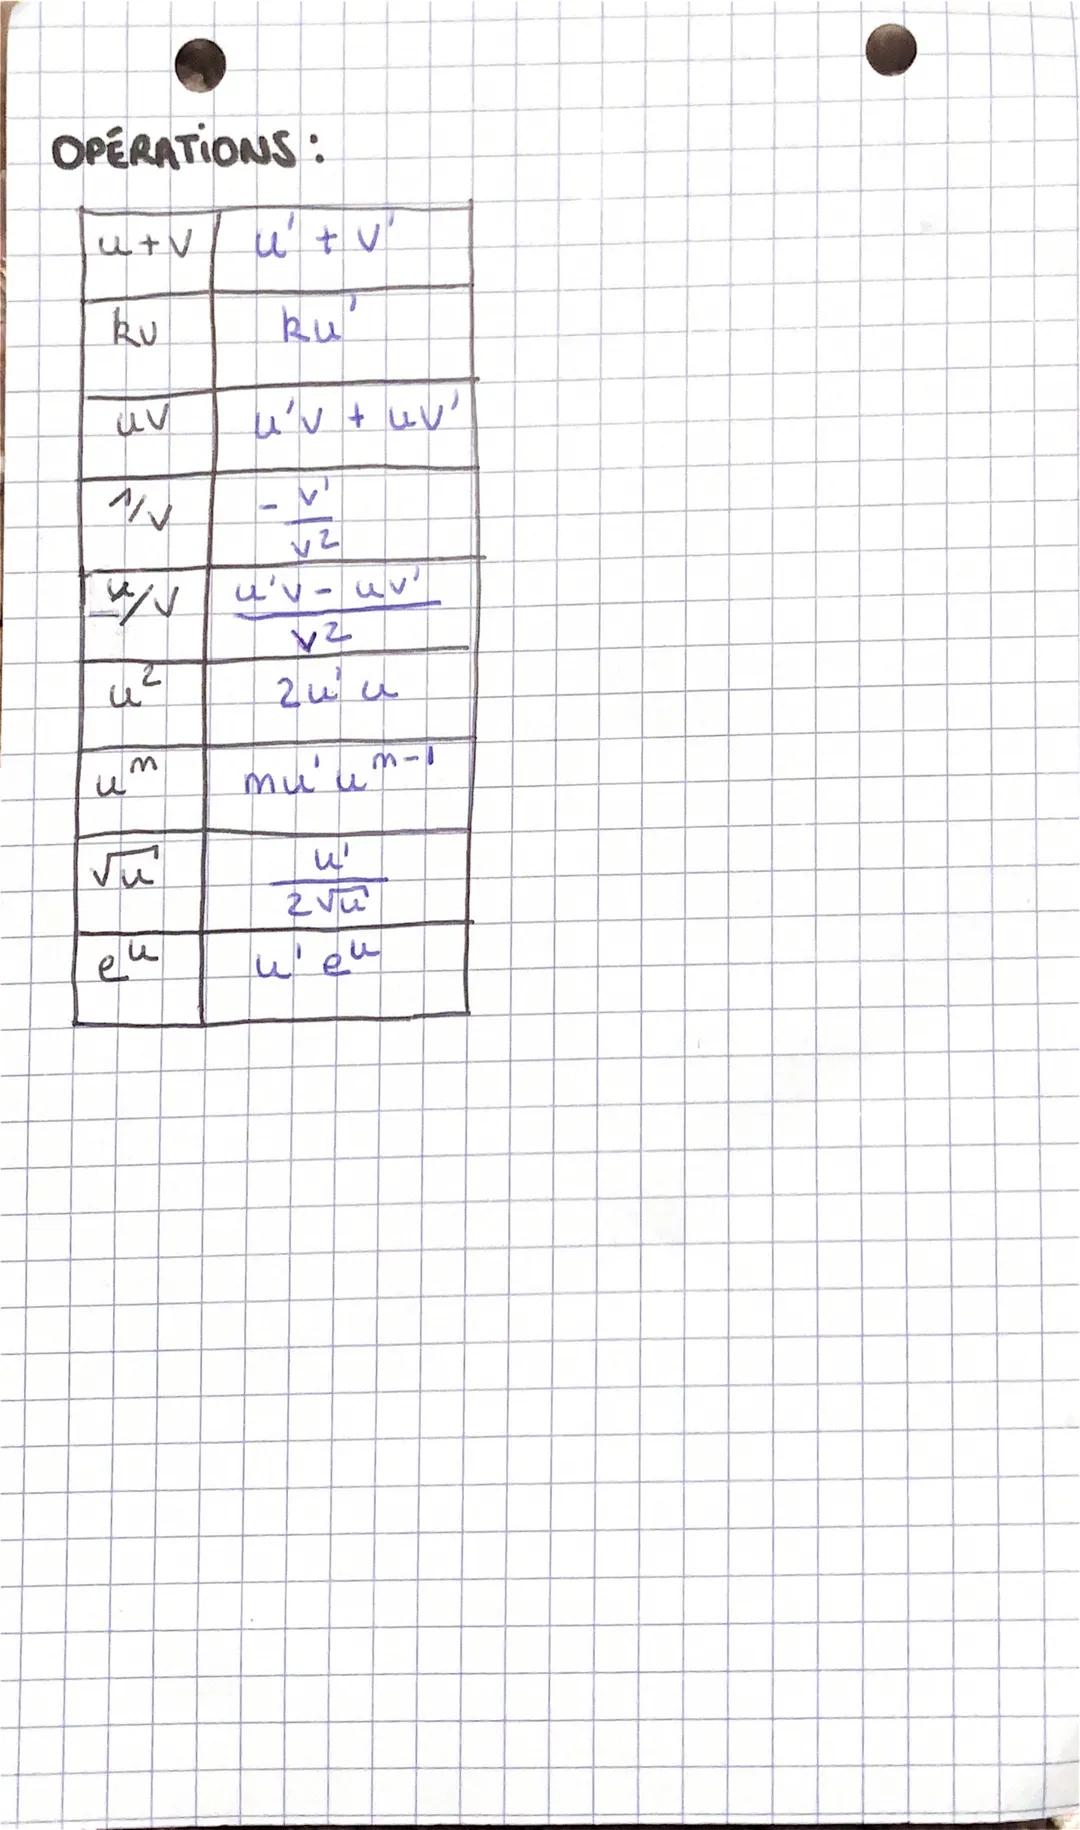 OPÉRATIONS :
u+v u' + v'
ku ku'
uv u'v + uv'
1/v - v'/v²
u/v u'v - uv'/v²
u² 2u' u
uⁿ nu' uⁿ⁻¹
√u u'/2√u
eᵘ u' eᵘ